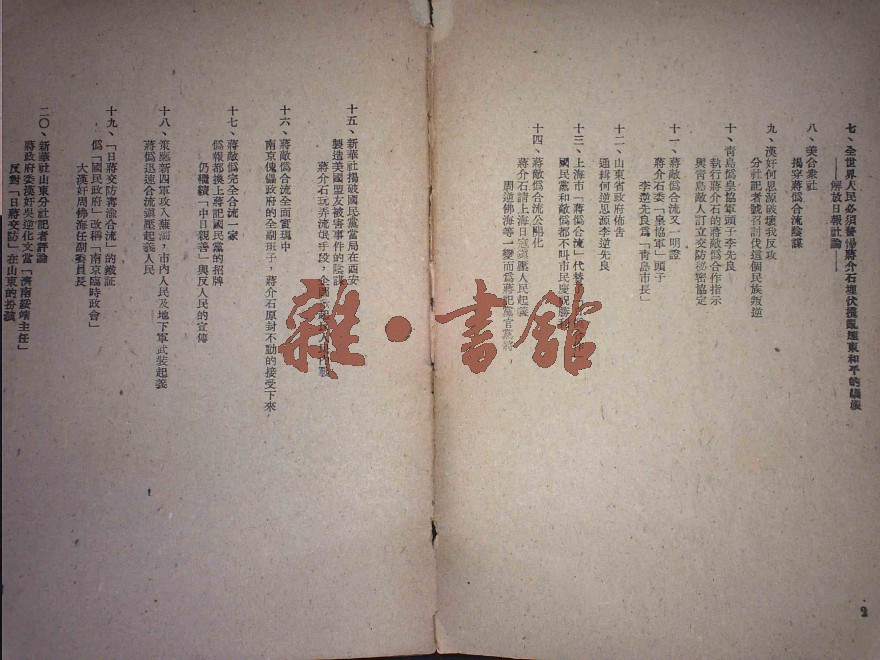 七、全世界人民必須警惕蔣介石埋伏擾亂遠東和平的
——解放日報社論——
八、美合衆社
揭穿蔣僞合流陰謀
九、漢奸何思源破壞我反攻
分社記者號召討伐這個民族叛逆
十、青島僞皇協軍頭子李先良
執行蔣介石的蔣敵僞合作指示
與青島敵人訂立交防秘密協定
李逆先良爲「青島市長」
十一、蔣敵僞合流又一明證
蔣介石委「皇協軍」頭子
十二、山東省政府佈告
通緝何逆思源李逆先良
十三、上海市「蔣僞合流」代替
國民黨和敵僞都不叫市民慶祝勝利
十四、蔣敵僞合流公開化
蔣介石請上海日寇鎭壓人民起義
周逆佛海等一變而爲蔣記黨官黨將
十五、新華社揭破國民黨當局在西安
製造美國盟友被害事件的陰謀
蔣介石玩弄流氓手段，企圖
十六、蔣敵僞合流全面實現中
南京傀儡政府的全副班子，蔣介石原封不動的接受下來
十七、蔣敵僞完全合流一家
僞報都換上蔣記國民黨的招牌
仍繼續「中日親善」與反人民的宣傳
十八、策應新四軍攻入蕪湖，市內人民及地下軍武裝起義
蔣僞迅速合流鎭壓起義人民
十九、「日蔣交防寗渝合流」的鐵証
僞「國民政府」改稱「南京臨時政會」
大漢奸周佛海任副委員長
二〇、新華社山東分社記者評論
蔣政府委漢奸吳逆化文當「濟南綏靖主任」
反對「日蔣交防」在山東的扮演
2
雜·書館